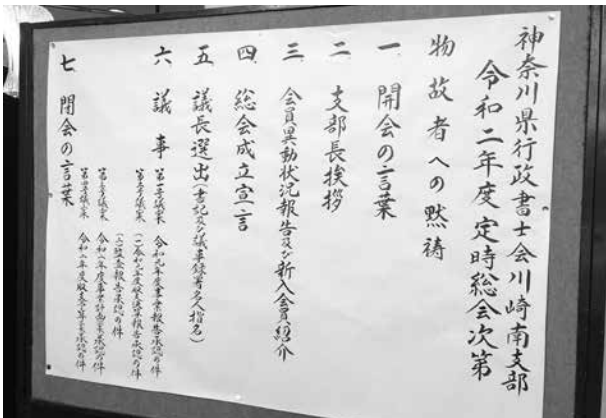 神奈川県行政書士会川崎南支部
令和二年度定時総会次第
物故者への黙祷
一 開会の言葉
二 支部長挨拶
三 会員異動状況報告及び新入会員紹介
四 総会成立宣言
五 議長選出(書記及び議事録署名人指名)
六 議事
第一号議案 令和元年度事業報告承認の件
第二号議案 (一)令和元年度収支決算報告承認の件
(二)監査報告承認の件
第三号議案 令和二年度事業計画案承認の件
第四号議案 令和二年度収支予算案承認の件
七 閉会の言葉